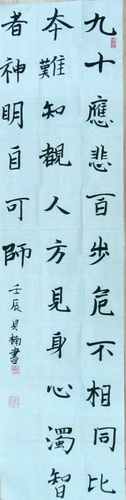 九十應悲百步危不相同比
本難知觀人方見身心濁智
者神明自可師
壬辰 貝楠書